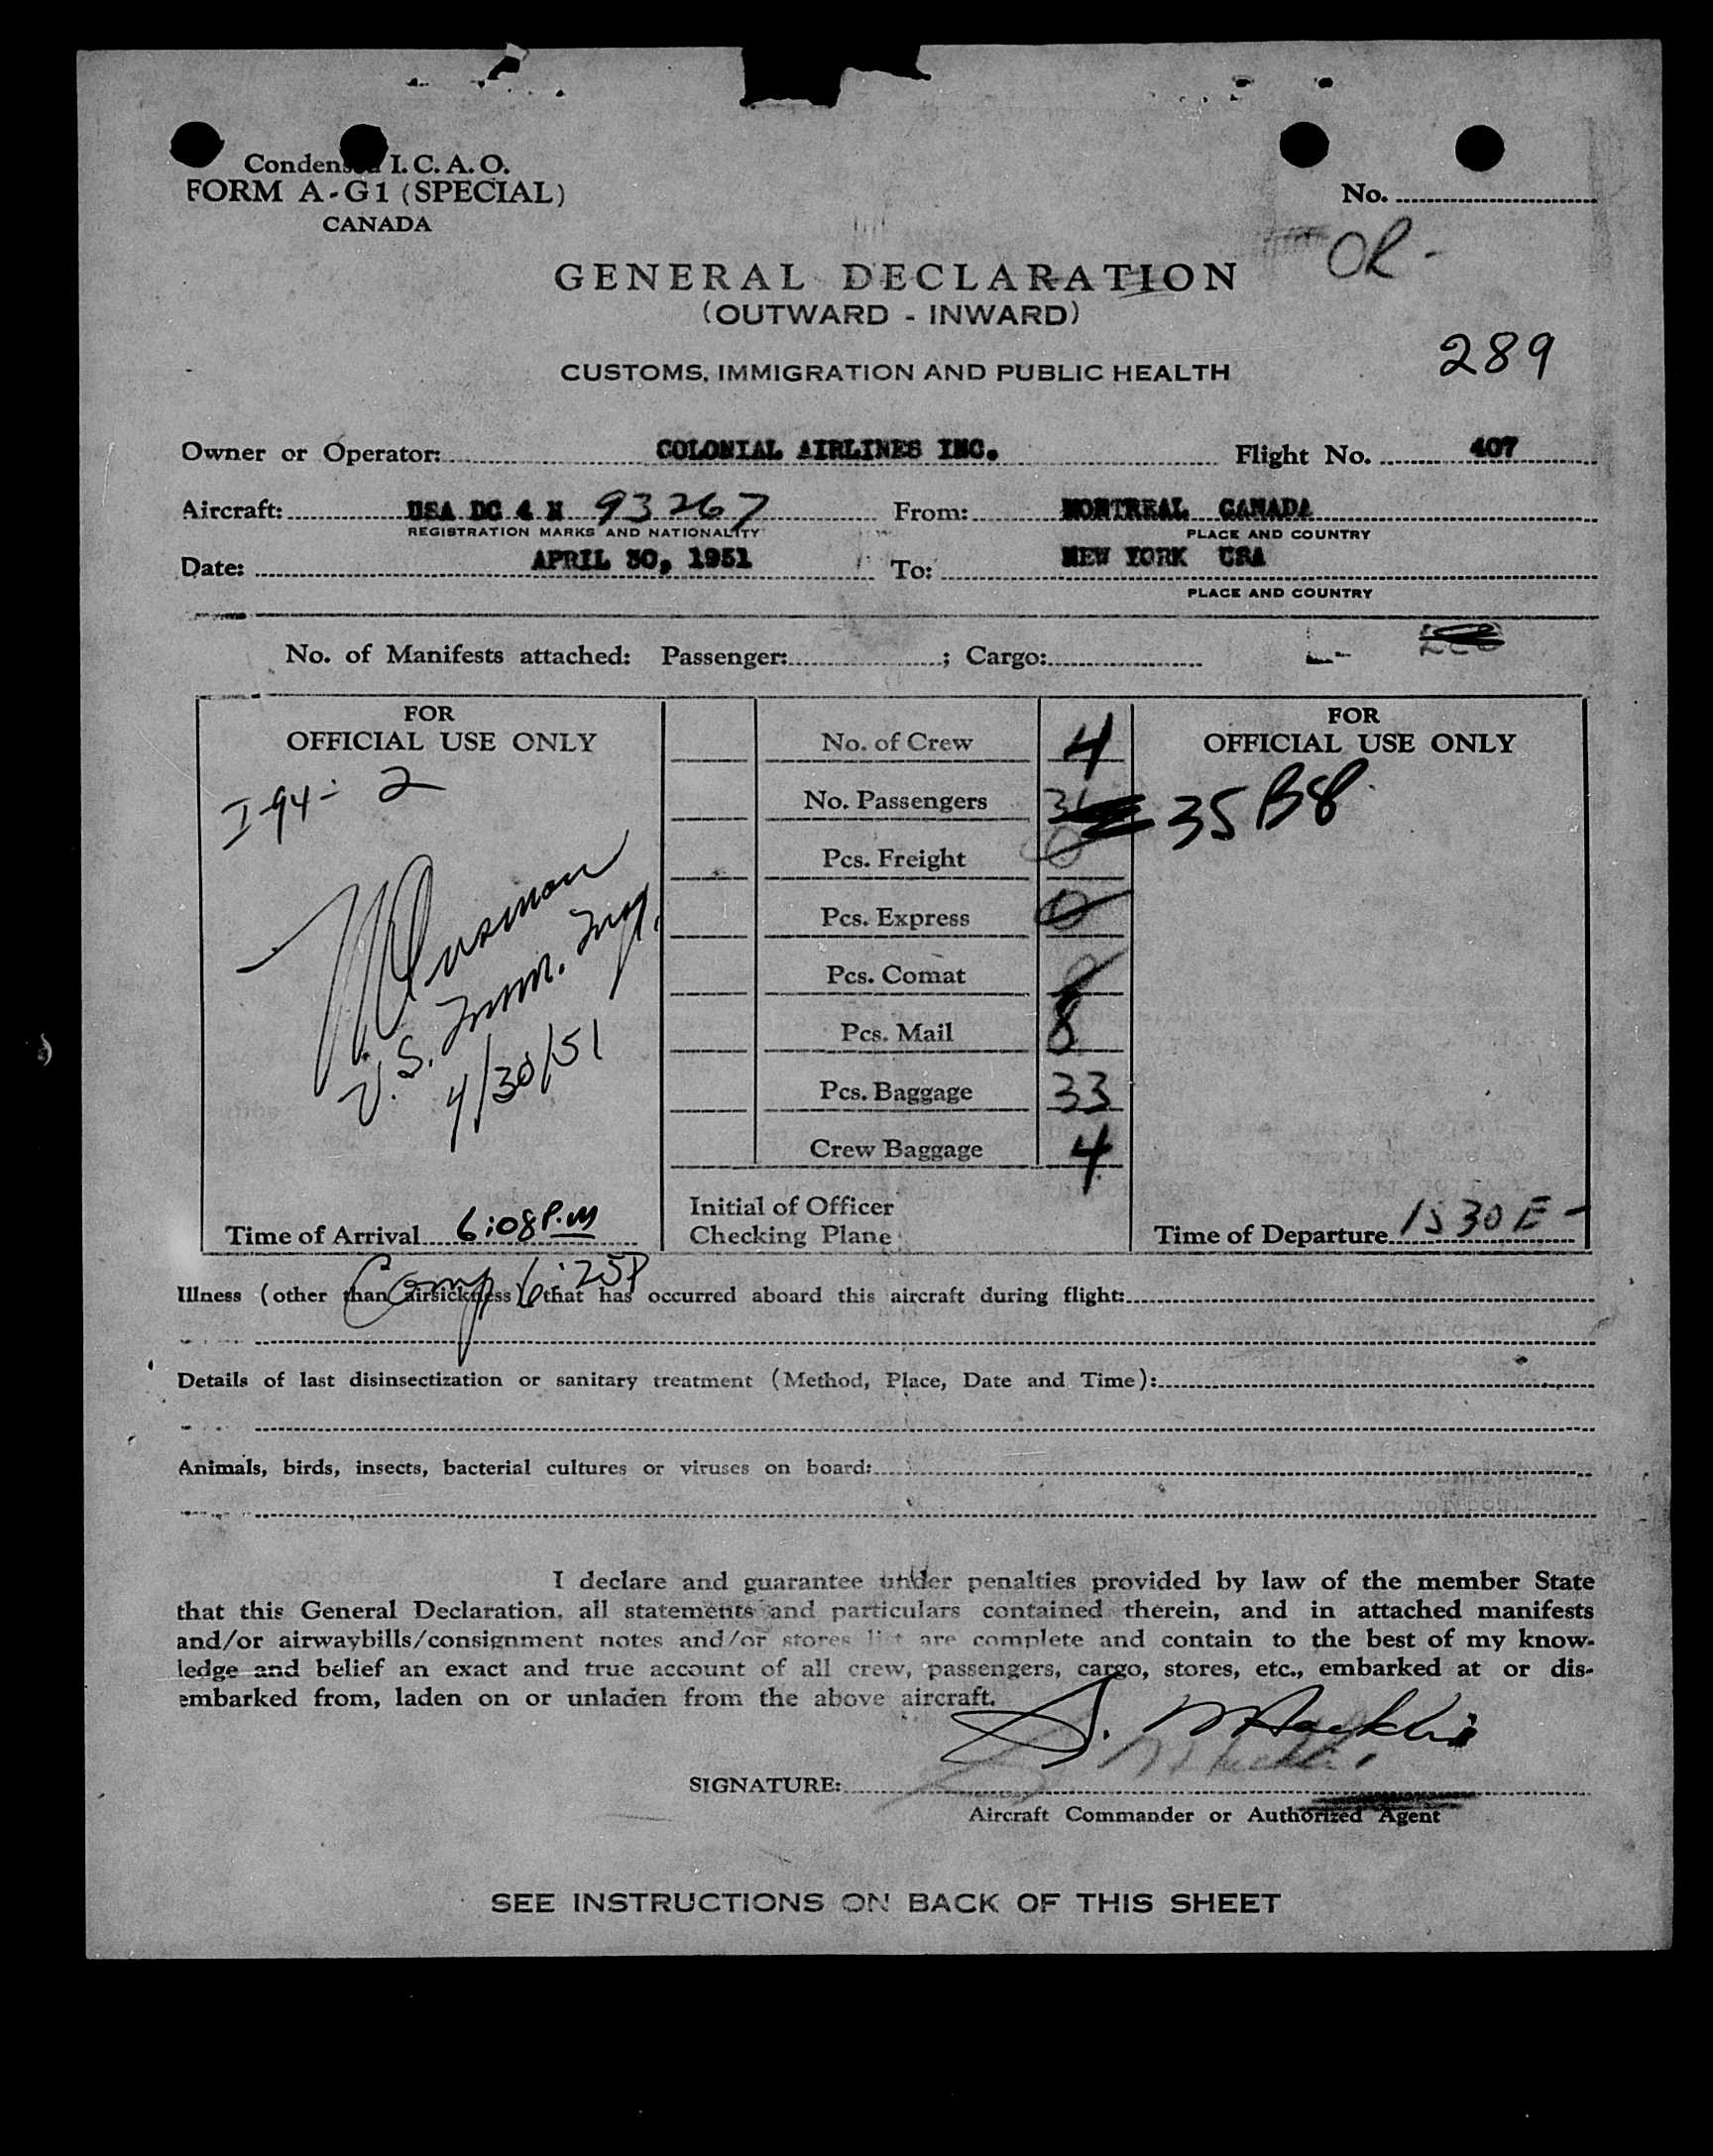 Condensed I. C. A. O.
FORM A-G1 (SPECIAL)
CANADA
No.
OR -
GENERAL DECLARATION
(OUTWARD - INWARD)
289
CUSTOMS, IMMIGRATION AND PUBLIC HEALTH
Owner or Operator: COLONIAL AIRLINES INC. Flight No. 407
Aircraft: USA DC 4 N 93267 From: MONTREAL CANADA
REGISTRATION MARKS AND NATIONALITY PLACE AND COUNTRY
Date: APRIL 30, 1951 To: NEW YORK USA
PLACE AND COUNTRY
No. of Manifests attached: Passenger: ; Cargo:
FOR
OFFICIAL USE ONLY
I-94- 2
U.S. Imm. Insp.
4/30/51
Time of Arrival 6:08 P.M
No. of Crew 4
No. Passengers
Pcs. Freight 0
Pcs. Express 0
Pcs. Comat
Pcs. Mail 8
Pcs. Baggage 33
Crew Baggage 4
Initial of Officer
Checking Plane
FOR
OFFICIAL USE ONLY
35 B8
Time of Departure 1530 E -
Comp 6:25P
Illness (other than airsickness) that has occurred aboard this aircraft during flight:
Details of last disinsectization or sanitary treatment (Method, Place, Date and Time):
Animals, birds, insects, bacterial cultures or viruses on board:
I declare and guarantee under penalties provided by law of the member State
that this General Declaration, all statements and particulars contained therein, and in attached manifests
and/or airwaybills/consignment notes and/or stores list are complete and contain to the best of my know-
ledge and belief an exact and true account of all crew, passengers, cargo, stores, etc., embarked at or dis-
embarked from, laden on or unladen from the above aircraft.
SIGNATURE:
Aircraft Commander or Authorized Agent
SEE INSTRUCTIONS ON BACK OF THIS SHEET